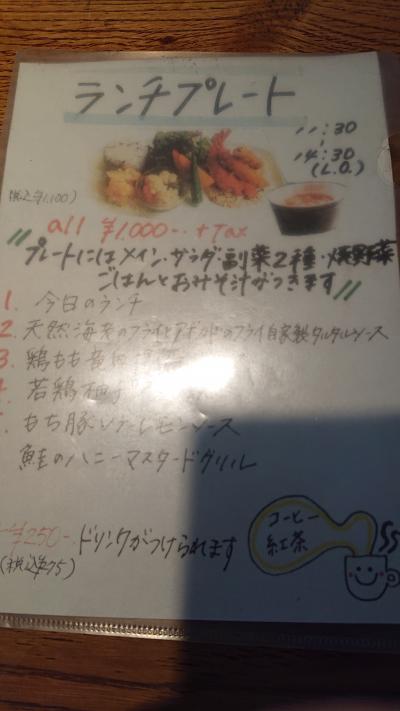 ランチプレート
11:30
14:30
(L.O.)
税込¥1,100)
all ¥1,000-. +Tax
"プレートにはメイン・サラダ・副菜2種・焼野菜
ごはんとおみそ汁がつきます"
1. 今日のランチ
2. 天然海老のフライとアボカドのフライ自家製タルタルソース
3 鶏もも
若鶏柚子
もち豚ソテーレモンソース
鮭のハニーマスタードグリル
¥250-. ドリンクがつけられます
(税込¥275)
コーヒー
紅茶